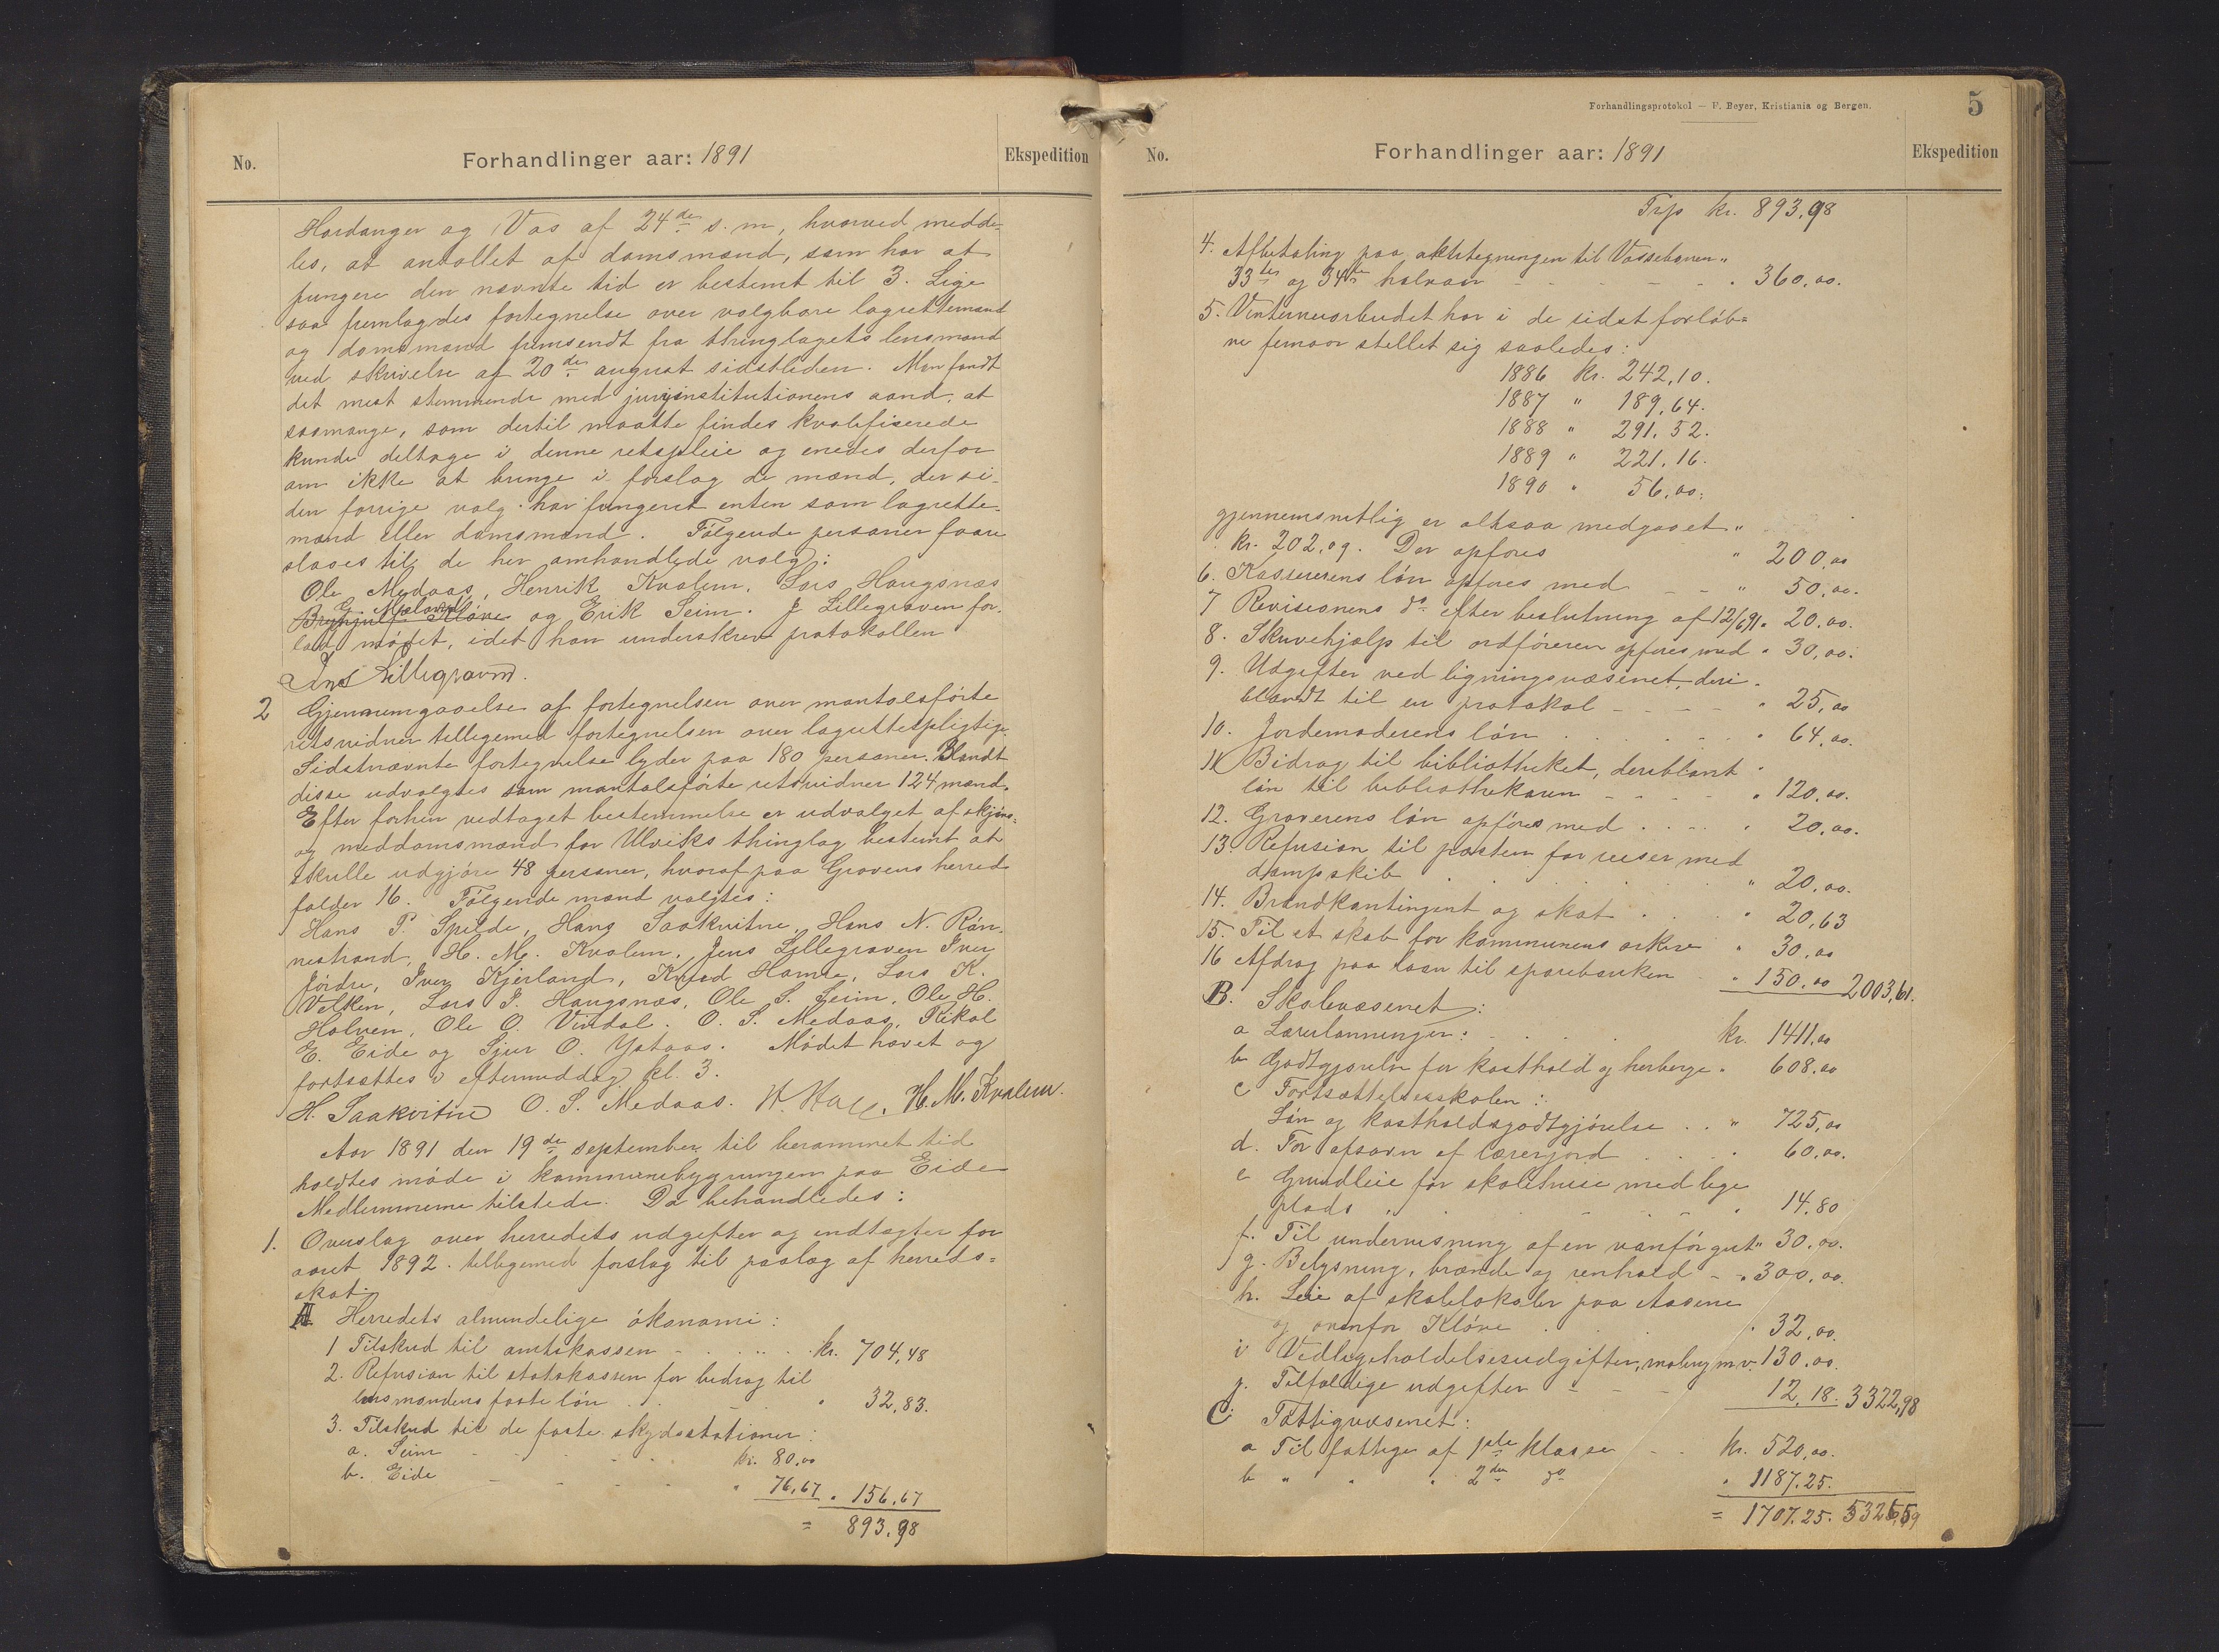 No.
Forhandlinger aar: 1891
Ekspedition
Hardanger og Vos af 24de s. m., hvorved medde-
les, at antallet af domsmænd, som har at
fungere den nævnte tid er bestemt til 3. Lige
saa fremlagdes fortegnelse over valgbare lagrettemænd
og domsmænd fremsendt fra thinglagets lensmand
ved skrivelse af 20de august sidstleden. Man fandt
det mest stemmende med juryinstitutionens aand, at
saamange, som dertil maatte findes kvalifiserede
kunde deltage i denne retspleie og enedes derfor
om ikke at bringe i forslag de mænd, der si-
den forrige valg har fungeret enten som lagrette-
mænd eller domsmænd. Følgende personer fore-
slaaes til de her omhandlede valg:
Ole Medaas, Henrik Kvalem, Lars Haugsnæs
G. Mæland
Brynjulf Kløve og Erik Seim. J Lillegraven for-
lod mødet, idet han underskrev protokollen
Jens Lillegraven.
2 Gjennemgaaelse af fortegnelsen over mantalsførte
retsvidner tilligemed fortegnelsen over lagrettespligtige.
Sidstnævnte fortegnelse lyder paa 180 personer. Blandt
disse udvalgtes som mantalsførte retsvidner 124 mænd.
Efter forhen vedtaget bestemmelse er udvalget af skjøns-
og meddomsmænd for Ulviks thinglag bestemt at
skulle udgjøre 48 personer, hvoraf paa Gravens herred
falder 16. Følgende mænd valgtes:
Hans P. Spilde, Hans Saakvitne, Hans N. Røn-
nestrand, H. M. Kvalem, Jens Lillegraven Iver
Jørdre, Iver Kjerland, Knud Hamre, Lars K.
Velken, Lars J. Haugsnæs, Ole S. Seim, Ole H.
Halven, Ole O. Vindal. O. S. Medaas, Kikal
E. Eide og Sjur O. Ystaas. Mødet hævet og
fortsættes i eftermiddag kl. 3.
H. Saakvitne O. S. Medaas. H. M. Kvalem.
Aar 1891 den 19de september til berammet tid
holdtes møde i kommunebygningen paa Eide
Medlemmerne tilstede. Da behandledes:
1. Overslag over herredets udgifter og indtægter for
aaret 1892. tilligemed forslag til paalæg af herreds-
skat.
A Herredets almindelige økonomi:
1 Tilskud til amtskassen - . . . . kr. 704,48
2. Refusion til statskassen for bidrag til
lensmandens faste løn . . - . " 32,83.
3. Tilskud til de faste skydsstationer:
a. Seim - - - - - kr. 80,00
b. Eide - - - - " 76,67 " 156,67
= 893,98
Forhandlingsprotokol — F. Beyer, Kristiania og Bergen.
5
No.
Forhandlinger aar: 1891
Ekspedition
Trp kr. 893,98
4. Afbetaling paa aktietegningen til Vossebanen "
33te og 34te halvaar - - - - - " 360,00.
5. Vinterveiarbeidet har i de sidst forløb-
ne femaar stellet sig saaledes:
1886 kr. 242,10.
1887 " 189,64.
1888 " 291,52.
1889 " 221,16.
1890 " 56,00.
gjennemsnitlig er altsaa medgaaet "
kr. 202,09. Der opføres " 200,00
6. Kassererens løn opføres med - - " 50,00.
7 Revisionens do efter beslutning af 12/6 91 " 20.00.
8. Skrivehjælp til ordføreren opføres med " 30,00.
9. Udgifter ved ligningsvæsenet, deri-
blandt til en protokol - - - - " 25,00
10. Jordemoderens løn . . . . . . " 64,00.
11 Bidrag til bibliotheket, deriblant
løn til bibliothekaren - - - - " 120,00.
12. Graverens løn opføres med . . . . " 20,00.
13 Refusion til presten for reiser med
dampskib . . . . . " 20,00.
14. Brandkontingent og skat . . . " 20,63
15. Til et skab for kommunens arkiv " 30,00
16 Afdrag paa laan til sparebanken - " 150,00 2003,61.
B. Skolevæsenet:
a Lærerlønninger: . . . . kr. 1411,00
b Godtgjørelse for kosthold og herberge " 608,00
c Fortsættelsesskolen:
Løn og kostholdsgodtgjørelse . . " 725,00
d. For afsavn af lærerjord . . . " 60,00.
e Grundleie for skolehuse med lege
plads " . . - - - " 14,80
f. Til undervisning af en vanfør gut " 30,00.
g. Belysning, brænde og renhold - " 300,00.
h. Leie af skolelokaler paa Aasene
og ovenfor Kløve . . . " 32,00.
i Vedligeholdelsesudgifter, maling m v. 130.00.
j. Tilfældige udgifter - - - 12,18. 3322,98
C Fattigvæsenet:
a Til fattige af 1ste klasse - - kr. 520,00.
b " " " 2den do " 1187.25.
= 1707.25. 5326,59